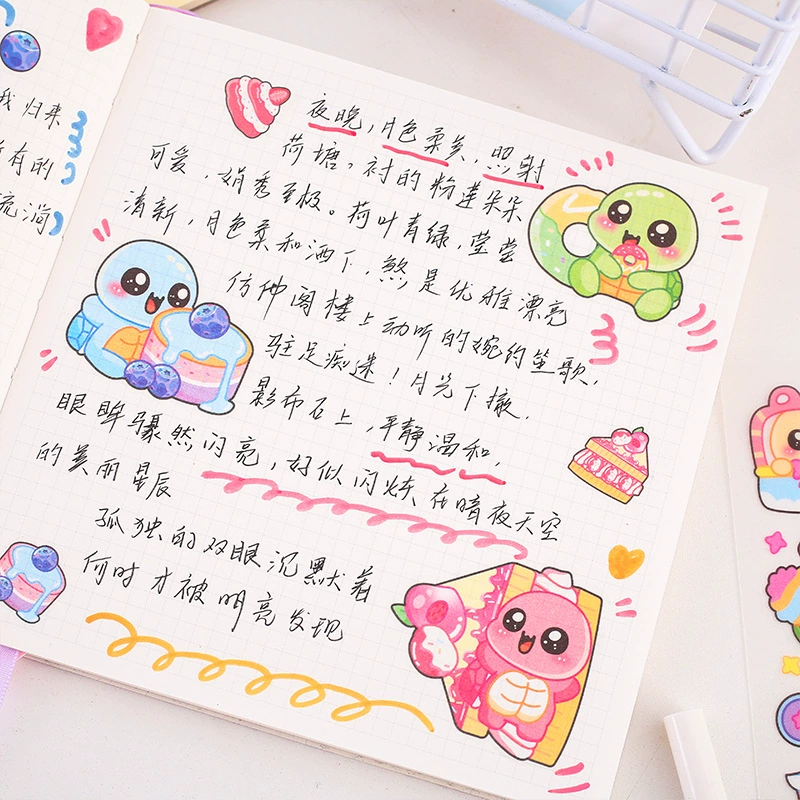 我归来
有的
流淌
夜晚，月色柔美，照射
荷塘，衬的粉莲朵朵
可爱，娟秀至极。荷叶青绿，莹莹
清新，月色柔和洒下，煞是优雅漂亮
仿佛阁楼上动听的婉约笙歌，
驻足痴迷！月光下撤，
影布石上，平静温和，
眼眸骤然闪亮，好似闪烁在暗夜天空
的美丽星辰
孤独的双眼沉默着
何时才被明亮发现